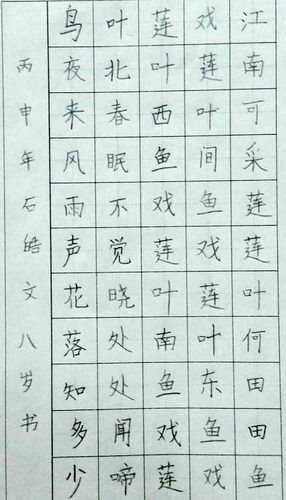 江南可采莲莲叶何田田鱼
戏莲叶间鱼戏莲叶东鱼戏
莲叶西鱼戏莲叶南鱼戏莲
叶北春眠不觉晓处处闻啼
鸟夜来风雨声花落知多少
丙申年石皓文八岁书